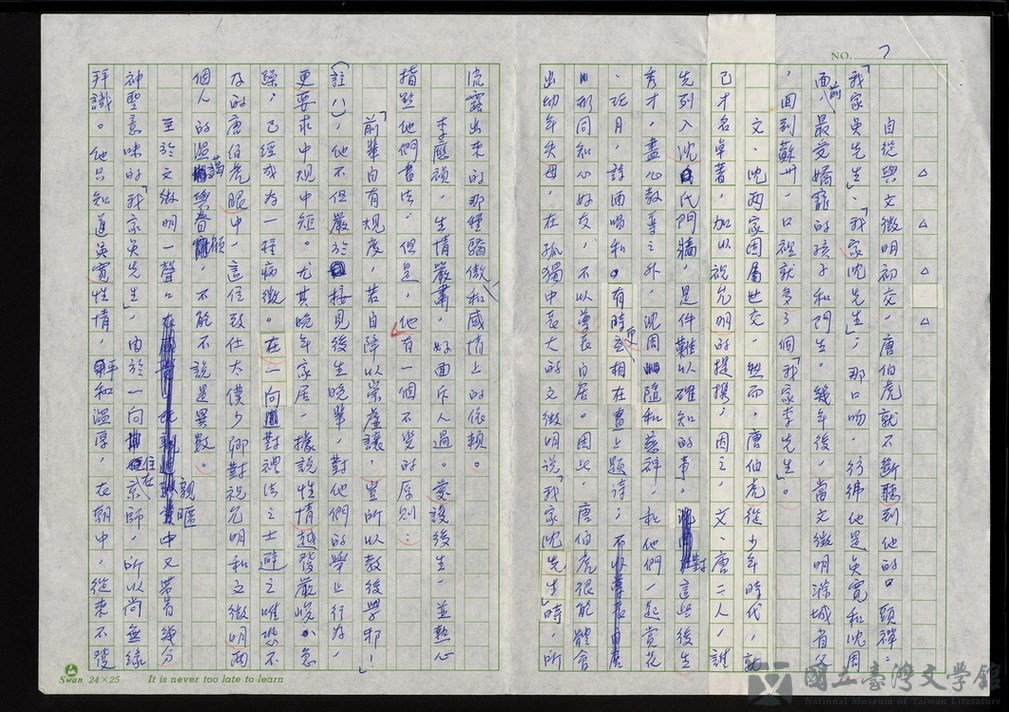 NO. 7
△ △ △ △
自從與文徵明初交,唐伯虎就不斷聽到他的口頭禪:
「我家吳先生」、「我家沈先生」;那口吻,彷彿他是吳寬和沈周
面前最受嬌寵的孩子和門生。幾年後,當文徵明滁城省父
,回到蘇州,口裡就多了個「我家李先生」。
文、沈兩家因屬世交,然而,唐伯虎從少年時代,就
已才名卓著,加以祝允明的提攜,因之,文、唐二人,誰
先列入沈氏門牆,是件難以確知的事。對這些後生
秀才,盡心教導之外,沈周隨和慈祥,和他們一起賞花
、玩月,詩酒唱和。有時更互相在畫上題詩;
形同知心好友,不以尊長自居。因此,唐伯虎很能體會
出幼年失母,在孤獨中長大的文徵明說「我家沈先生」時,所
流露出來的那種驕傲和感情上的依賴。
李應禎,生情嚴肅,好面斥人過。教誨後生,並熱心
指點他們書法,但是,他有一個不變的原則:
「前輩自有規度,若自降以崇虛讓,豈所以教後學邪!」
(註八),他不但嚴於接見後生晚輩,對他們的學止行為,
更要求中規中矩。尤其晚年家居,據說性情越發嚴峻、急
躁,已經成為一種病徵。在一向對禮法之士避之唯恐不
及的唐伯虎眼中,這位致仕太僕少卿對祝允明和文徵明兩
個人的溫藹與眷顧,不能不說是異數。
至於文徵明一聲口親暱中又若有幾分
神聖意味的「我家吳先生」,由於一向住在京師,所以尚無緣
拜識。他只知道吳寬性情,平和溫厚,在朝中,從來不發
Swan 24×25 It is never too late to learn
國立臺灣文學館
National Museum of Taiwan Literature